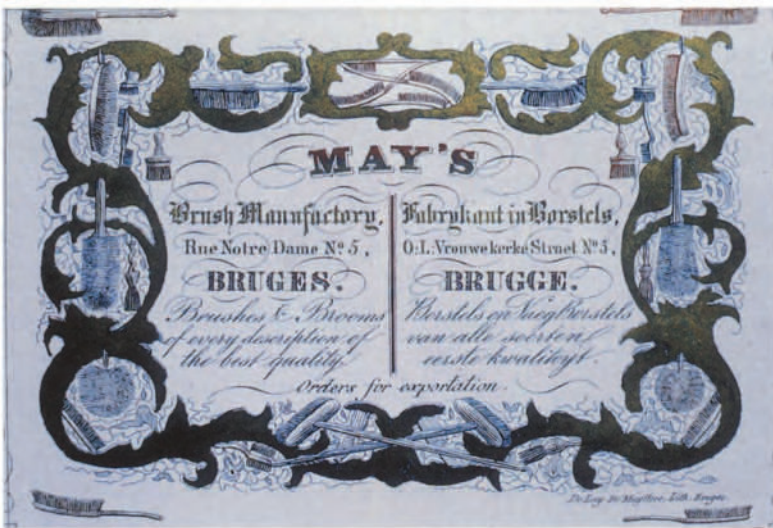 MAY'S
Brush Manufactory,
Rue Notre Dame Nº 5,
BRUGES.
Brushes & Brooms
of every description of
the best quality.
Fabrykant in Borstels,
O:L:Vrouwekerke Straet Nº 5,
BRUGGE.
Borstels en Vaeg Borstels
van alle soorten
eerste kwaliteyt.
Orders for exportation.
Lith. Bruges.